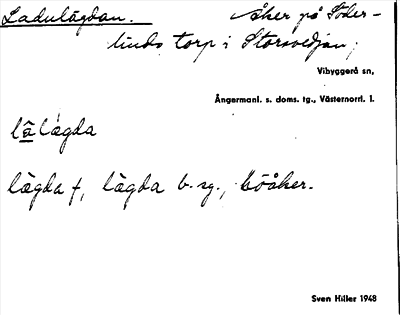 Ladulägdan. Åker på Söder-
linds torp i Storsvedjan,
Vibyggerå sn,
Ångermanl. s. doms. tg., Västernorrl. l.
lâlàgda
làgda f, làgda b. sg., bååker.
Sven Hiller 1948